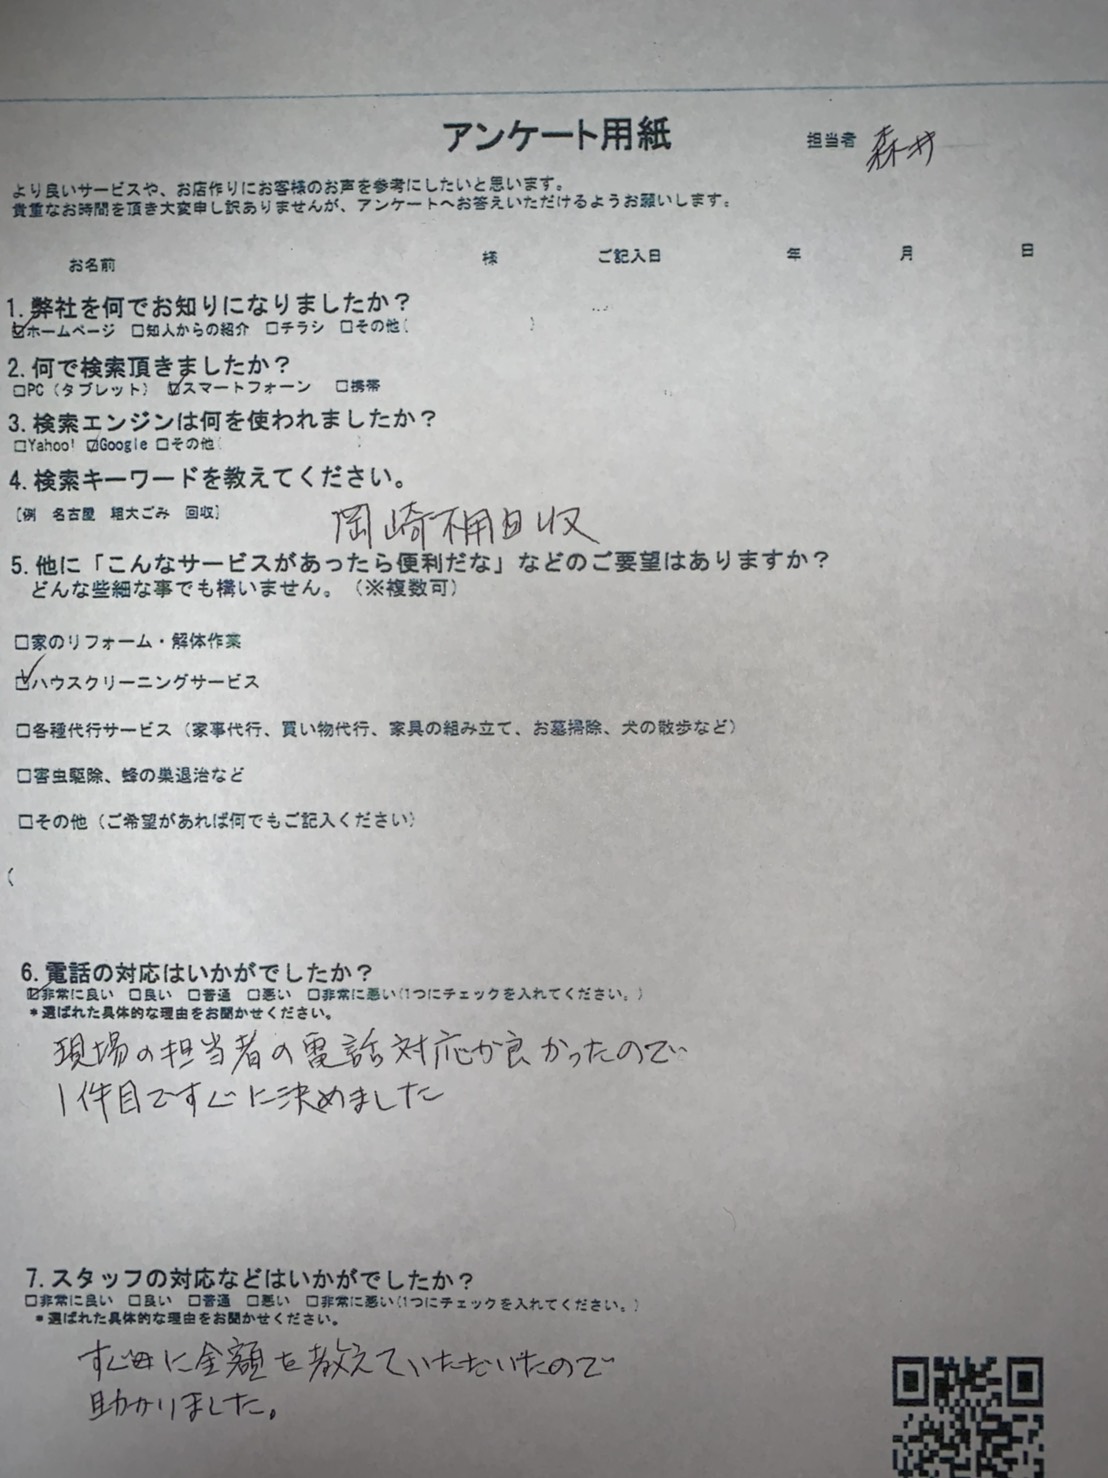 アンケート用紙
担当者 森井
より良いサービスや、お店作りにお客様のお声を参考にしたいと思います。
貴重なお時間を頂き大変申し訳ありませんが、アンケートへお答えいただけるようお願いします。
お名前 様 ご記入日 年 月 日
1. 弊社を何でお知りになりましたか？
☑ホームページ □知人からの紹介 □チラシ □その他( )
2. 何で検索頂きましたか？
□PC（タブレット） ☑スマートフォーン □携帯
3. 検索エンジンは何を使われましたか？
□Yahoo! ☑Google □その他( )
4. 検索キーワードを教えてください。
[例 名古屋 粗大ごみ 回収]
岡崎不用回収
5. 他に「こんなサービスがあったら便利だな」などのご要望はありますか？
どんな些細な事でも構いません。（※複数可）
□家のリフォーム・解体作業
☑ハウスクリーニングサービス
□各種代行サービス（家事代行、買い物代行、家具の組み立て、お墓掃除、犬の散歩など）
□害虫駆除、蜂の巣退治など
□その他（ご希望があれば何でもご記入ください）
(
6. 電話の対応はいかがでしたか？
☑非常に良い □良い □普通 □悪い □非常に悪い(1つにチェックを入れてください。)
*選ばれた具体的な理由をお聞かせください。
現場の担当者の電話対応が良かったので
1件目ですぐに決めました
7. スタッフの対応などはいかがでしたか？
□非常に良い □良い □普通 □悪い □非常に悪い(1つにチェックを入れてください。)
*選ばれた具体的な理由をお聞かせください。
すぐに金額を教えていただいたので
助かりました。